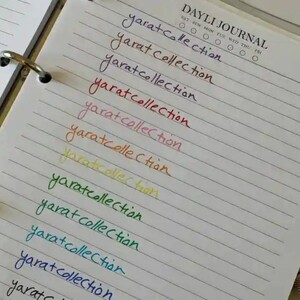 DAYLI JOURNAL
yaratcollection
yaratcollection
yaratcollection
yaratcollection
yaratcollection
yaratcollection
yaratcollection
yaratcollection
yaratcollection
yaratcollection
yaratcollection
yaratcollection